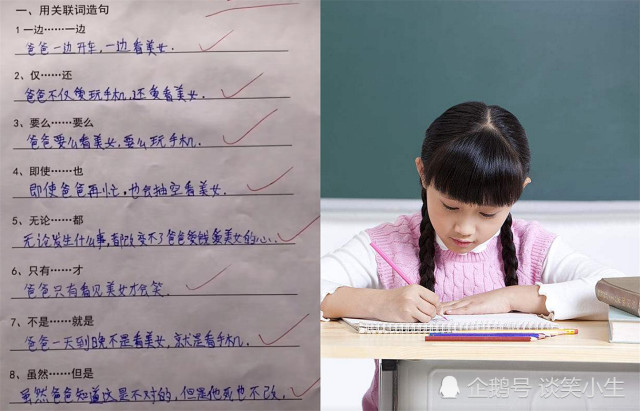 一、用关联词造句
1 一边……一边
爸爸一边开车，一边看美女．
2、仅……还
爸爸不仅爱玩手机，还爱看美女．
3、要么……要么
爸爸要么看美女，要么玩手机．
4、即使……也
即使爸爸再忙，也会抽空看美女．
5、无论……都
无论发生什么事，都改变不了爸爸爱钱爱美女的心．
6、只有……才
爸爸只有看见美女才会笑．
7、不是……就是
爸爸一天到晚不是看美女，就是看手机．
8、虽然……但是
虽然爸爸知道这是不对的，但是他死也不改．
企鹅号 谈笑小生